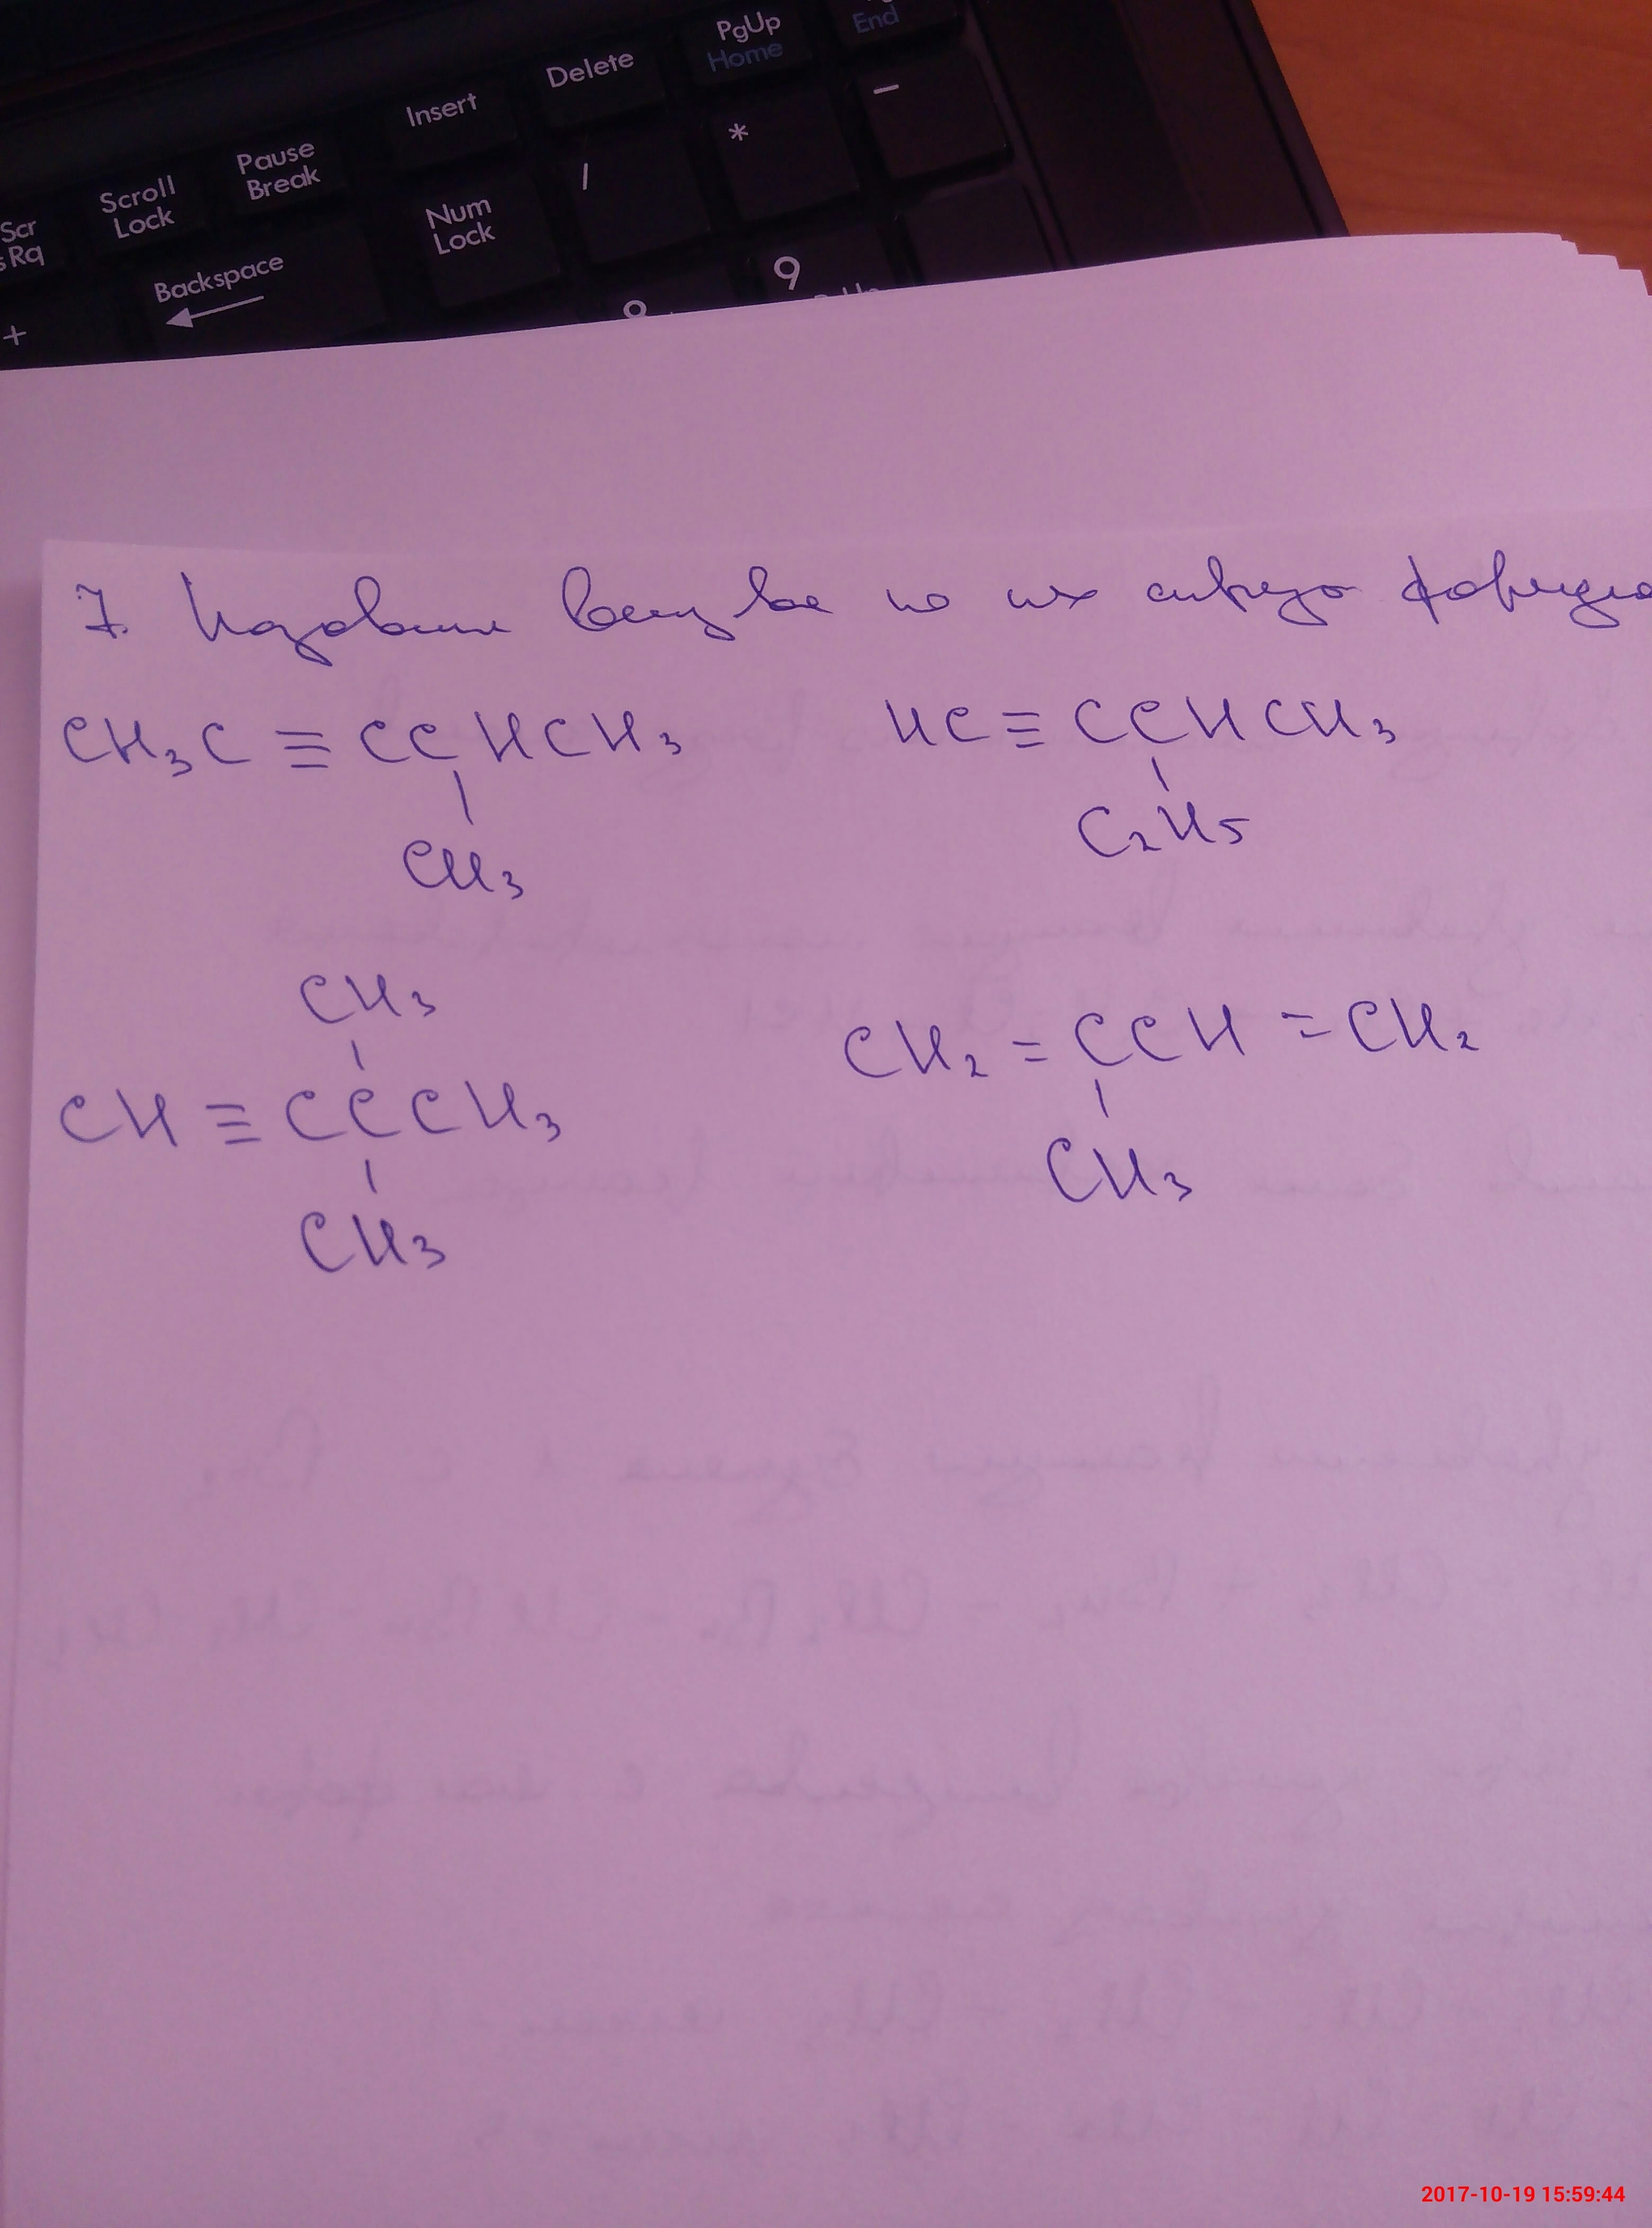 PgUp
Home
End
Delete
Insert
Pause
Break
Scroll
Lock
Scr
Rq
Num
Lock
/
*
–
Backspace
+
9
7. Название веществ по их структур формулам
CH₃C ≡ CCHCH₃
CH₃
HC ≡ CCHCH₃
C₂H₅
CH₃
CH ≡ CCCH₃
CH₃
CH₂ = CCH = CH₂
CH₃
2017-10-19 15:59:44